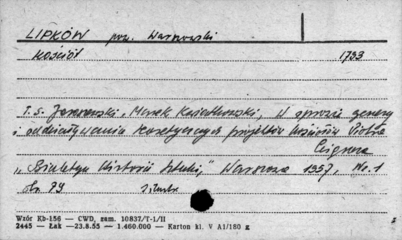 LIPKÓW pow. Warszawski
Kościół 1733
T. S. Jaroszewski, Marek Kwiatkowski, W sprawie genezy
i oddziaływania kasetonowych projektów kościoła Piotra
Aignera
"Biuletyn Historii Sztuki," Warszawa 1957, Nr. 1
str. 79
Wzór Kb-156 — CWD, zam. 10837/T-1/II
2445 — Łak — 23.8.55 — 1.460.000 — Karton kl. V A1/180 g